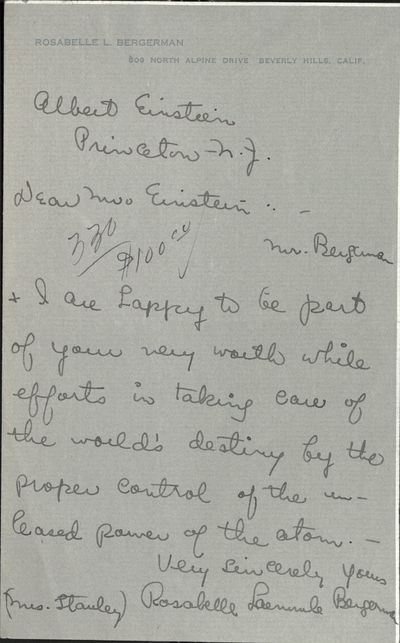 ROSABELLE L. BERGERMAN
609 NORTH ALPINE DRIVE BEVERLY HILLS, CALIF.
Albert Einstein
Princeton - N.J.
Dear Einstein : -
330
$100
Mr. Bergerman
+ I are happy to be part
of your very worth while
efforts in taking care of
the world's destiny by the
proper control of the un-
leased power of the atom. -
Very Sincerely Yours
(Mrs. Stanley) Rosabelle Laemmle Bergerman